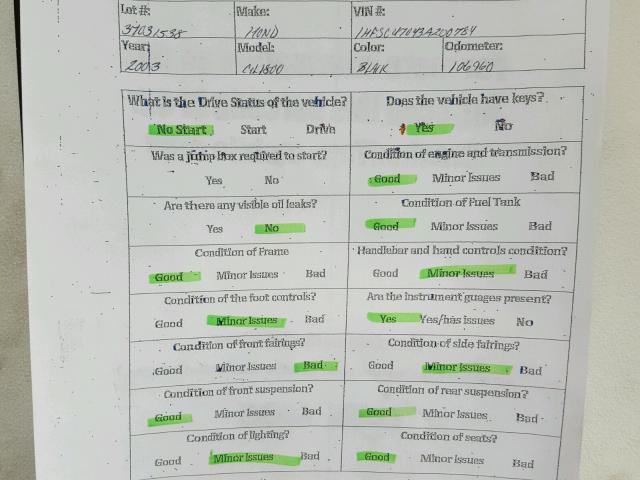 Lot #: Make: VIN #:
37031538 HOND
Year: Model: Color: Odometer:
2003 GL1800 BLACK 106960
What is the Drive Status of the vehicle? Does the vehicle have keys?
No Start Start Drive Yes No
Was a jump box required to start? Condition of engine and transmission?
Yes No Good Minor Issues Bad
Are there any visible oil leaks? Condition of Fuel Tank
Yes No Good Minor Issues Bad
Condition of Frame Handlebar and hand controls condition?
Good Minor Issues Bad Good Minor Issues Bad
Condition of the foot controls? Are the instrument guages present?
Good Minor Issues Bad Yes Yes/has issues No
Condition of front fairings? Condition of side fairings?
Good Minor Issues Bad Good Minor Issues Bad
Condition of front suspension? Condition of rear suspension?
Good Minor Issues Bad Good Minor Issues Bad
Condition of lighting? Condition of seats?
Good Minor Issues Bad Good Minor Issues Bad